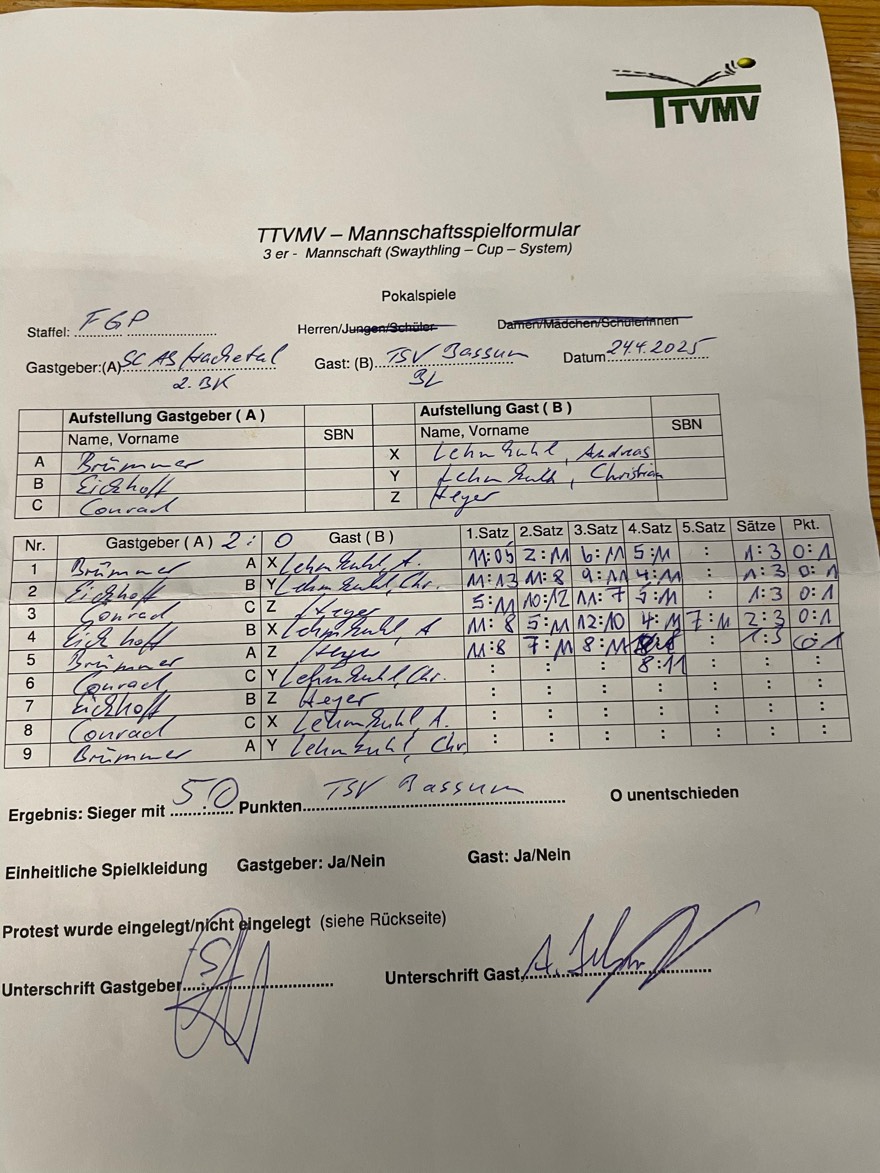 TTVMV
TTVMV – Mannschaftsspielformular
3 er - Mannschaft (Swaythling – Cup – System)
Pokalspiele
Staffel: FGP Herren/Jungen/Schüler Damen/Mädchen/Schülerinnen
Gastgeber:(A) SC AS Hachetal Gast: (B) TSV Bassum Datum 24.4.2025
2. BK BL
Aufstellung Gastgeber ( A ) Aufstellung Gast ( B )
Name, Vorname SBN Name, Vorname SBN
A Brümmer X Lehmkuhl, Andreas
B Eickhoff Y Lehmkuhl, Christian
C Conrad Z Heyer
Nr. Gastgeber ( A ) 2: 0 Gast ( B ) 1.Satz 2.Satz 3.Satz 4.Satz 5.Satz Sätze Pkt.
1 Brümmer A X Lehmkuhl, A. 11:05 2:11 6:11 5:11 : 1:3 0:1
2 Eickhoff B Y Lehmkuhl, Chr. 11:13 11:8 9:11 4:11 : 1:3 0:1
3 Conrad C Z Heyer 5:11 10:12 11:7 5:11 : 1:3 0:1
4 Eickhoff B X Lehmkuhl, A 11:8 5:11 12:10 4:11 7:11 2:3 0:1
5 Brümmer A Z Heyer 11:8 7:11 8:11 8:11 : 1:3 0:1
6 Conrad C Y Lehmkuhl, Chr. : : : : : :
7 Eickhoff B Z Heyer : : : : : : :
8 Conrad C X Lehmkuhl, A. : : : : : : :
9 Brümmer A Y Lehmkuhl, Chr : : : : : : :
Ergebnis: Sieger mit 5:0 Punkten TSV Bassum O unentschieden
Einheitliche Spielkleidung Gastgeber: Ja/Nein Gast: Ja/Nein
Protest wurde eingelegt/nicht eingelegt (siehe Rückseite)
Unterschrift Gastgeber Unterschrift Gast